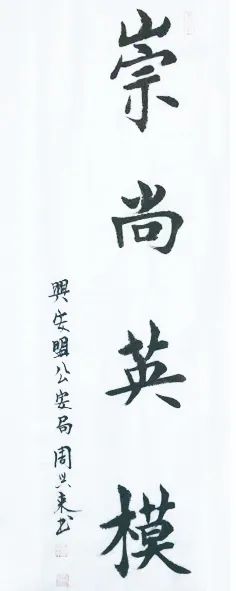 崇尚英模
興安盟公安局周兴東书